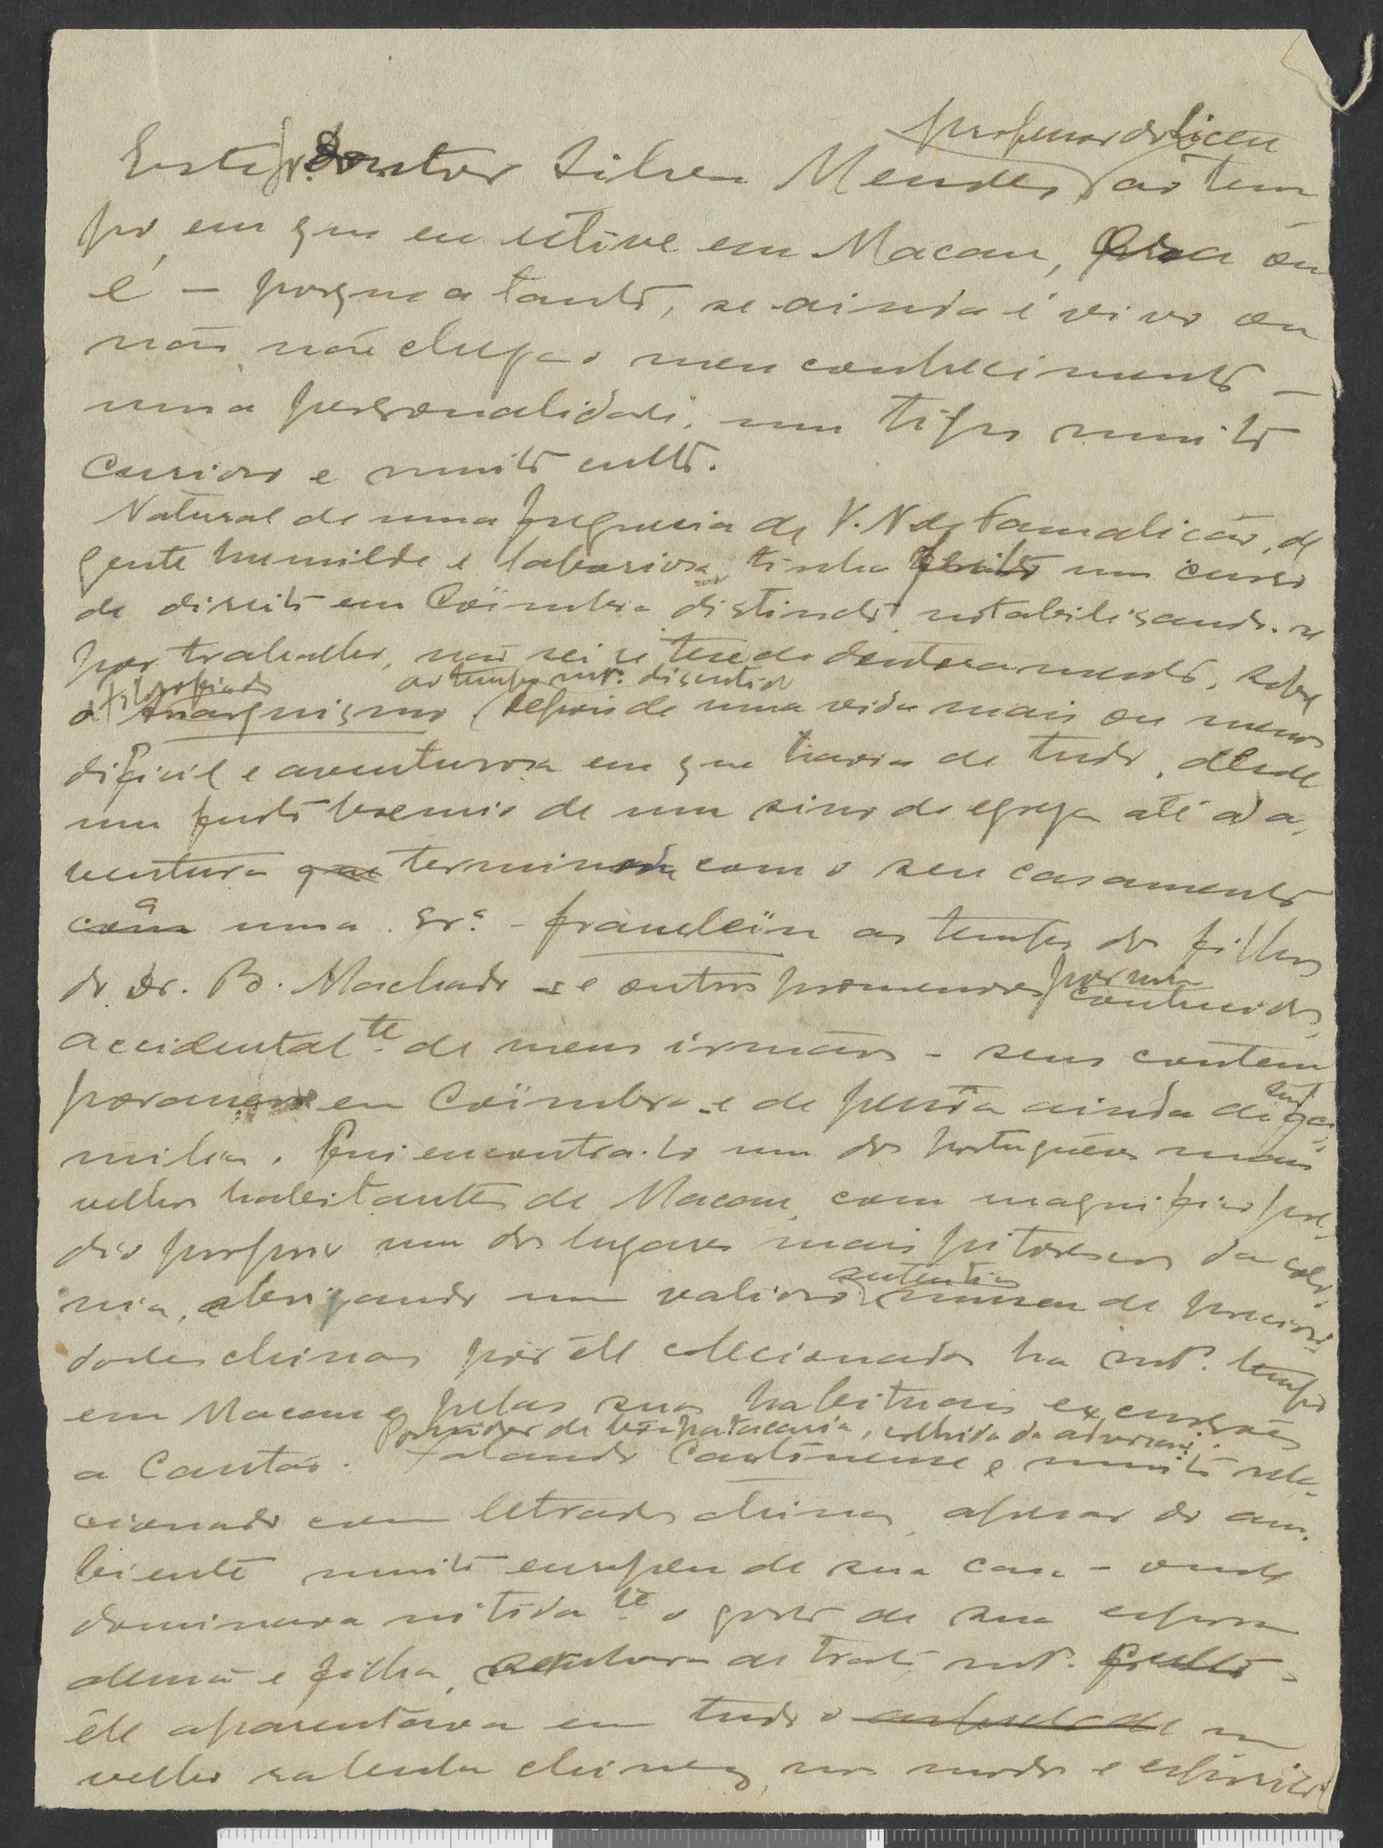 professor do Liceu
Este Dr. Silva Mendes, ao tem-
po em que eu estive em Macau, era ou
é — porque a tanto, se ainda é vivo ou
não, não chega o meu conhecimento —
uma personalidade, um tipo muito
curioso e muito culto.
Natural de uma freguesia de V. N. de Famalicão, de
gente humilde e laboriosa, tinha um curso
de direito em Coïmbra distincto, notabilisando-se
por trabalho, não sei se tese de doutoramento, sobre
ao tempo mto. discutido
o Anarquismo, depois de uma vida mais ou menos
dificil e aventurosa em que havia de tudo, desde
um furto boemio de um sino de egreja até á a-
ventura que terminou com o seu casamento
com uma Sr.ª - frauleïn ao tempo dos filhos
do Dr. B. Machado - e outros pormenores por mim conhecidos,
accidentalte. de meus irmãos - seus contem-
poraneos em Coïmbra - e de pessoa ainda de sua fa-
milia. Fui encontra-lo um dos portuguêses mais
velhos habitantes de Macau, com magnifico pre-
dio proprio num dos lugares mais pitorescos da colo-
nia, abrigando um valioso
autentico
museu de preciosi-
dades chinas por êle collecionadas ha mto. tempo
em Macau e pelas suas habituais excursões
Possuidor de bôa patacaria, colhida da advocacia.
a Cantão. Falando Cantonense e muito rela-
cionado com letrados chinas, apesar do am-
biente muito europeu de sua casa - onde
dominava nitidate. o gosto de sua esposa
alemã e filha, senhora de trato mto. culto -
êle aparentava em tudo o um
velho letrado chinez, nos modos e espirito